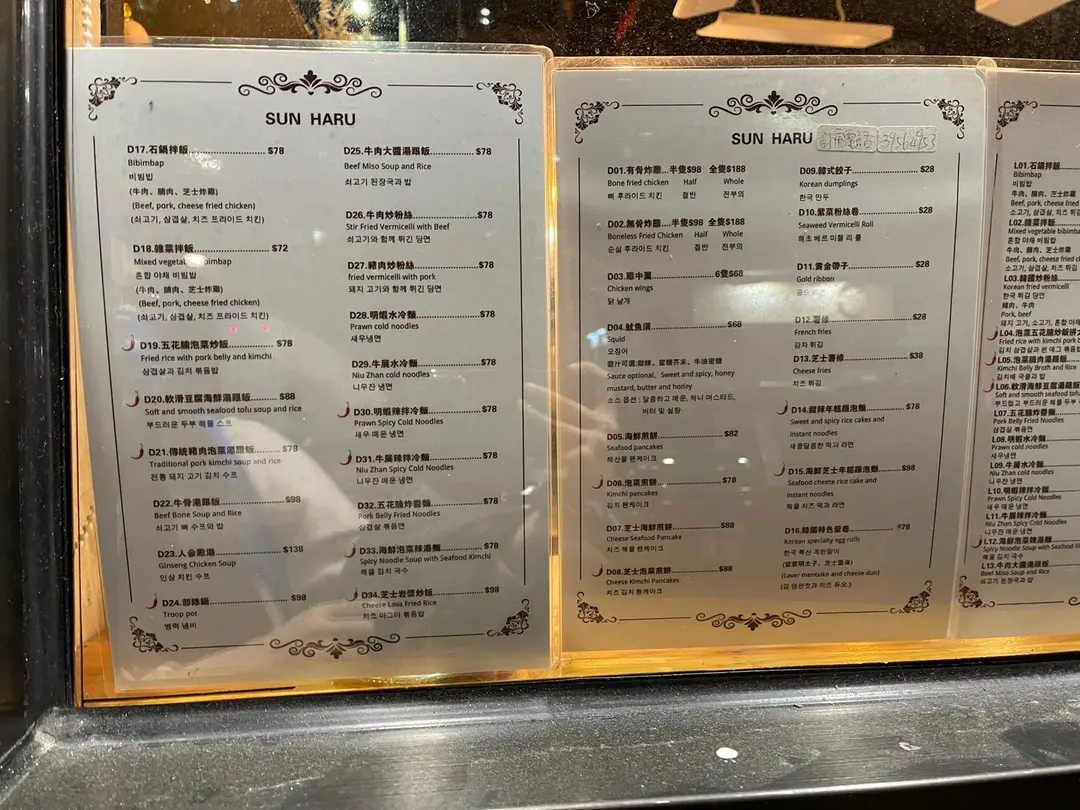 SUN HARU
D17.石鍋拌飯................................$78
Bibimbap
비빔밥
(牛肉、腩肉、芝士炸雞)
(Beef, pork, cheese fried chicken)
(쇠고기, 삼겹살, 치즈 프라이드 치킨)
D18.雜菜拌飯...........................$72
Mixed vegetable bibimbap
혼합 야채 비빔밥
(牛肉、腩肉、芝士炸雞)
(Beef, pork, cheese fried chicken)
(쇠고기, 삼겹살, 치즈 프라이드 치킨)
D19.五花腩泡菜炒飯.................$78
Fried rice with pork belly and kimchi
삼겹살과 김치 볶음밥
D20.軟滑豆腐海鮮湯跟飯..........$88
Soft and smooth seafood tofu soup and rice
부드러운 두부 해물 스프
D21.傳統豬肉泡菜湯跟飯..........$78
Traditional pork kimchi soup and rice
전통 돼지 고기 김치 수프
D22.牛骨湯跟飯.......................$98
Beef Bone Soup and Rice
쇠고기 뼈 수프와 밥
D23.人參雞湯..........................$138
Ginseng Chicken Soup
인삼 치킨 수프
D24.部隊鍋..............................$98
Troop pot
병력 냄비
D25.牛肉大醬湯跟飯..............$78
Beef Miso Soup and Rice
쇠고기 된장국과 밥
D26.牛肉炒粉絲.....................$78
Stir Fried Vermicelli with Beef
쇠고기와 함께 튀긴 당면
D27.豬肉炒粉絲.....................$78
fried vermicelli with pork
돼지 고기와 함께 튀긴 당면
D28.明蝦水冷麵.....................$78
Prawn cold noodles
새우냉면
D29.牛展水冷麵.....................$78
Niu Zhan cold noodles
니우잔 냉면
D30.明蝦辣拌冷麵.................$78
Prawn Spicy Cold Noodles
새우 매운 냉면
D31.牛展辣拌冷麵.................$78
Niu Zhan Spicy Cold Noodles
니우잔 매운 냉면
D32.五花腩炸醬麵.................$78
Pork Belly Fried Noodles
삼겹살 볶음면
D33.海鮮泡菜辣湯麵.............$78
Spiry Noodle Soup with Seafood Kimchi
해물 김치 국수
D34.芝士岩漿炒飯.................$98
Cheese Lava Fried Rice
치즈 마그마 볶음밥
SUN HARU
D01.有骨炸雞....半隻$98 全隻$188
Bone fried chicken Half Whole
뼈 후라이드 치킨 절반 전부의
D02.無骨炸雞....半隻$98 全隻$188
Boneless Fried Chicken Half Whole
순살 후라이드 치킨 절반 전부의
D03.雞中翼.......................6隻$68
Chicken wings
닭 날개
D04.魷魚須..............................$68
Squid
오징어
醬汁可選:甜辣、蜜糖芥末、牛油蜜糖
Sauce optional: Sweet and spicy, honey
mustard, butter and horley
소스 옵션 : 달콤하고 매운, 허니 머스타드,
버터 및 설탕
D05.海鮮煎餅...........................$82
Seafood pancakes
해산물 팬케이크
D06.泡菜煎餅...........................$78
Kimchi pancakes
김치 팬케이크
D07.芝士海鮮煎餅....................$88
Cheese Seafood Pancake
치즈 해물 팬케이크
D08.芝士泡菜煎餅....................$88
Cheese Kimchi Pancakes
치즈 김치 팬케이크
D09.韓式餃子.............................$28
Korean dumplings
한국 만두
D10.紫菜粉絲卷.........................$28
Seaweed Vermicelli Roll
해초 베르 미첼 리 롤
D11.黃金帶子.............................$28
Gold ribbon
골드 리본
D12.薯條....................................$28
French fries
감자 튀김
D13.芝士薯條.............................$38
Cheese fries
치즈 튀김
D14.甜辣年糕跟泡麵.................$78
Sweet and spicy rice cakes and
instant noodles
새콤달콤한 떡과 라면
D15.海鮮芝士年糕跟泡麵..........$98
Seafood cheese rice cake and
instant noodles
해물 치즈 떡과 라면
D16.韓國特色蛋卷....................$78
Korean specialty egg rolls
한국 특선 계란말이
(紫菜明太子、芝士蔥卷)
(Laver mentaiko and cheese duo)
(김 멘란젓과 치즈 듀오.)
L01.石鍋拌飯
Bibimbap
비빔밥
Beef, pork, cheese fried
소고기, 삼겹살, 치즈
L02.雜菜拌飯
Mixed vegetable bibimbap
혼합 야채 비빔밥
Beef, pork, cheese
소고기, 삼겹살, 치즈 튀김
L03.韓國炒粉絲
Korean fried vermicelli
한국 튀긴 당면
豬肉、牛肉
Pork, beef
돼지 고기, 소고기
L04.泡菜五花腩炒飯
Fried rice with kimchi pork
L05.泡菜腩肉湯跟飯
Kimchi Belly Broth and Rice
L06.軟滑海鮮豆腐湯跟飯
L07.五花腩炸醬麵
Pork Belly Fried Noodles
삼겹살 볶음면
L08.明蝦水冷麵
Prawn cold noodles
새우냉면
L09.牛展水冷麵
Niu Zhan cold noodles
니우잔 냉면
L10.明蝦辣拌冷麵
Prawn Spicy Cold Noodles
새우 매운 냉면
L11.牛展辣拌冷麵
Niu Zhan Spicy Cold Noodles
니우잔 매운 냉면
L12.海鮮泡菜辣湯麵
Spiry Noodle Soup with Seafood
해물 김치 국수
L13.牛肉大醬湯跟飯
Beef Miso Soup and Rice
쇠고기 된장국과 밥